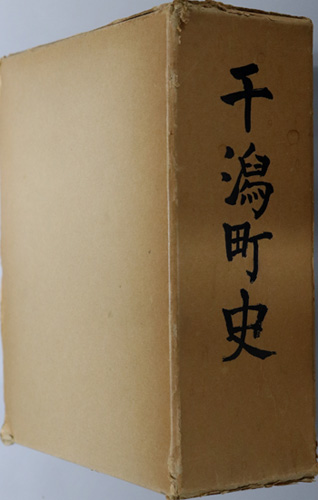 干潟町史